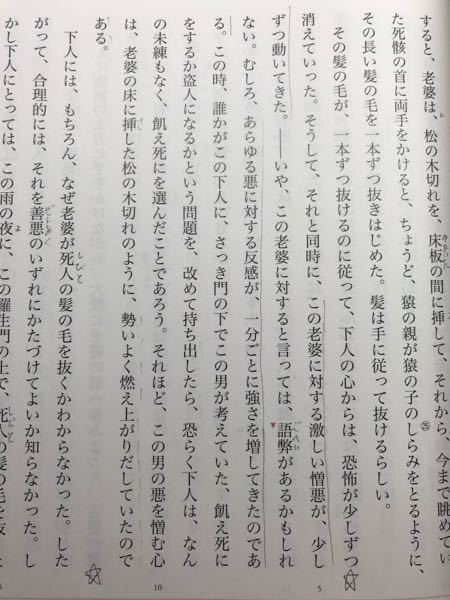 すると、老婆は、松の木切れを、床板の間に挿して、それから、今まで眺めてい
た死骸の首に両手をかけると、ちょうど、猿の親が猿の子のしらみをとるように、
その長い髪の毛を一本ずつ抜きはじめた。髪は手に従って抜けるらしい。
その髪の毛が、一本ずつ抜けるのに従って、下人の心からは、恐怖が少しずつ
消えていった。そうして、それと同時に、この老婆に対する激しい憎悪が、少し
ずつ動いてきた。――いや、この老婆に対すると言っては、語弊があるかもしれ
ない。むしろ、あらゆる悪に対する反感が、一分ごとに強さを増してきたのであ
る。この時、誰かがこの下人に、さっき門の下でこの男が考えていた、飢え死に
をするか盗人になるかという問題を、改めて持ち出したら、恐らく下人は、なん
の未練もなく、飢え死にを選んだことであろう。それほど、この男の悪を憎む心
は、老婆の床に挿した松の木切れのように、勢いよく燃え上がりだしていたので
ある。
下人には、もちろん、なぜ老婆が死人の髪の毛を抜くかわからなかった。した
がって、合理的には、それを善悪のいずれにかたづけてよいか知らなかった。し
かし下人にとっては、この雨の夜に、この羅生門の上で、死人の髪の毛を抜
㉕
5
10